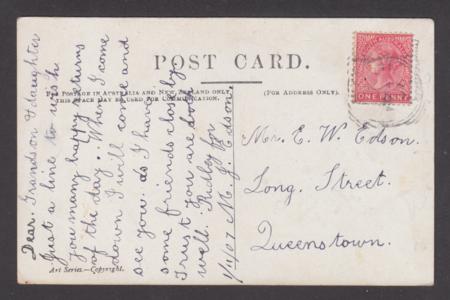 POST CARD.
FOR POSTAGE IN AUSTRALIA AND NEW ZEALAND ONLY,
THIS SPACE MAY BE USED FOR COMMUNICATION.
(FOR ADDRESS ONLY).
Dear. Grandson & daughter
Just a line to wish
you many happy returns
of the day.. When I come
down I will come and
see you. as I have
some friends close by
Trust you are both
well. Ridley for
1/11/07 M. J. Edson.
Art Series.—Copyright.
ONE PENNY
Mr. E. W. Edson.
Long. Street.
Queenstown.